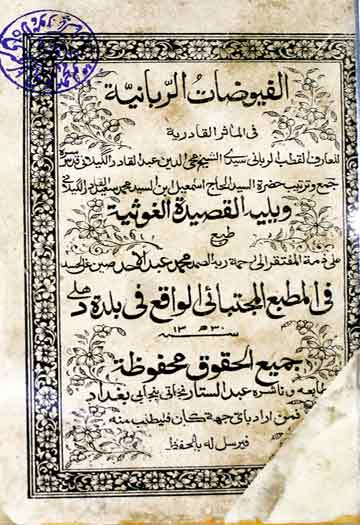 الفيوضات الربانية
فى المآثر القادرية
للعارف القطب الربانى سيدى الشيخ محى الدين عبدالقادر الگيلانى قدس سره
جمع وترتيب حضرة السيد الحاج اسمعيل ابن السيد محمد سعيد القادرى الگيلانى
ويليه القصيدة الغوثية
طبع
على ذمة المفتقر الى رحمة ربه الصمد محمد عبد الاحد صين عن الحسد
فى المطبع المجتبائى الواقع فى بلدة دهلى
١٣٣٠
جميع الحقوق محفوظة
لطابعه وناشره عبد الستار پنجابى بغداد
فمن اراد باى جهة كان فليطلب منه
فيرسل له بالحفظ